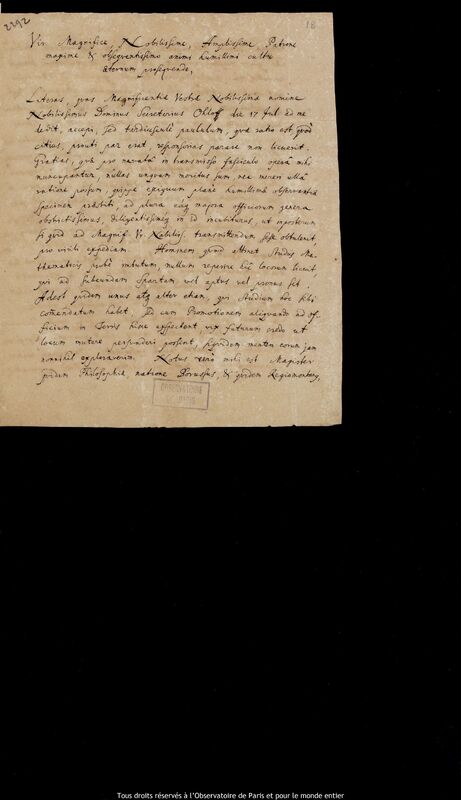 2292
18
Vir Magnifice, Nobilissime, Amplissime, Patrone
maxime & observantissimo animi humillimi cultu
æternum prosequende,
Literas, quas Magnificentiæ Vestræ Nobilissimæ nomine
Nobilissimus Dominus Secretarius Ohloff die 17 Jul. ad me
dedit, accepi, sed paululum, quæ ratio est quod
citius, prouti par erat, responsorias parare non licuerit.
Gratias, quæ pro navata in transmisso fasciculo opera mihi
nuncupantur, nullas unquam meritus sum, nec mereri ulla
ratione possum, quippe exiguum plane humillimæ observantiæ
specimen exhibui, ad plura eaq majora officiorum genera
obstrictissimus, diligentissimeq in id incubiturus, ut inposterum
si quid ad Magnif. Vr. Nobiliss. transmittendum sese obtulerit,
pro virili expediam. Hominem quod attinet Studijs Ma-
thematicis probe imbutum, nullum reperire hic locorum licuit,
qui ad subeundam Spartam vel aptus vel pronus sit.
Adest quidem unus atq alter etiam, qui Studium hoc sibi
comendatum habet, sed cum Promotionem aliquando ad of-
ficium in Terris hisce exspectent, vix futurum credo ut
locum mutare persvaderi possent, siquidem mentem eorum jam
nonnihil exploraverim. Notus vero mihi est Magister
quidam Philosophiæ, natione Borussus, & quidem Regiomontanus,
OBSERVATOIRE
DE PARIS
Tous droits réservés à l'Observatoire de Paris et pour le monde entier